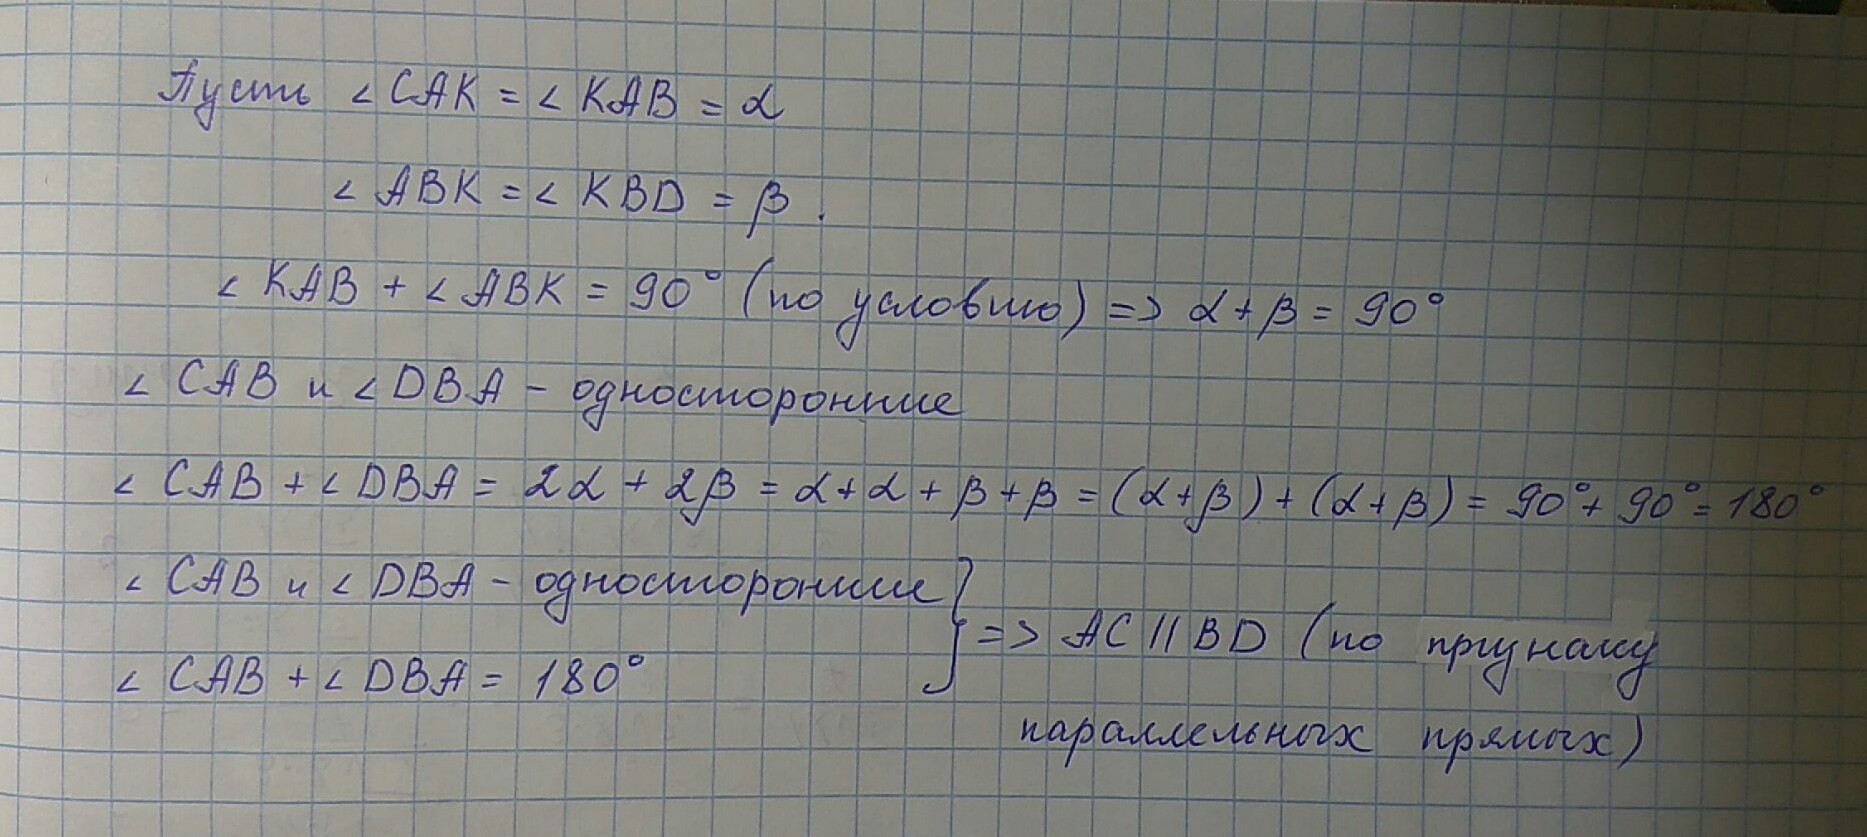 Пусть ∠ CAK = ∠ KAB = α
∠ ABK = ∠ KBD = β.
∠ KAB + ∠ ABK = 90° (по условию) => α + β = 90°
∠ CAB и ∠ DBA - односторонние
∠ CAB + ∠ DBA = 2α + 2β = α + α + β + β = (α + β) + (α + β) = 90° + 90° = 180°
∠ CAB и ∠ DBA - односторонние
∠ CAB + ∠ DBA = 180°
} => AC || BD (по признаку
параллельных прямых)